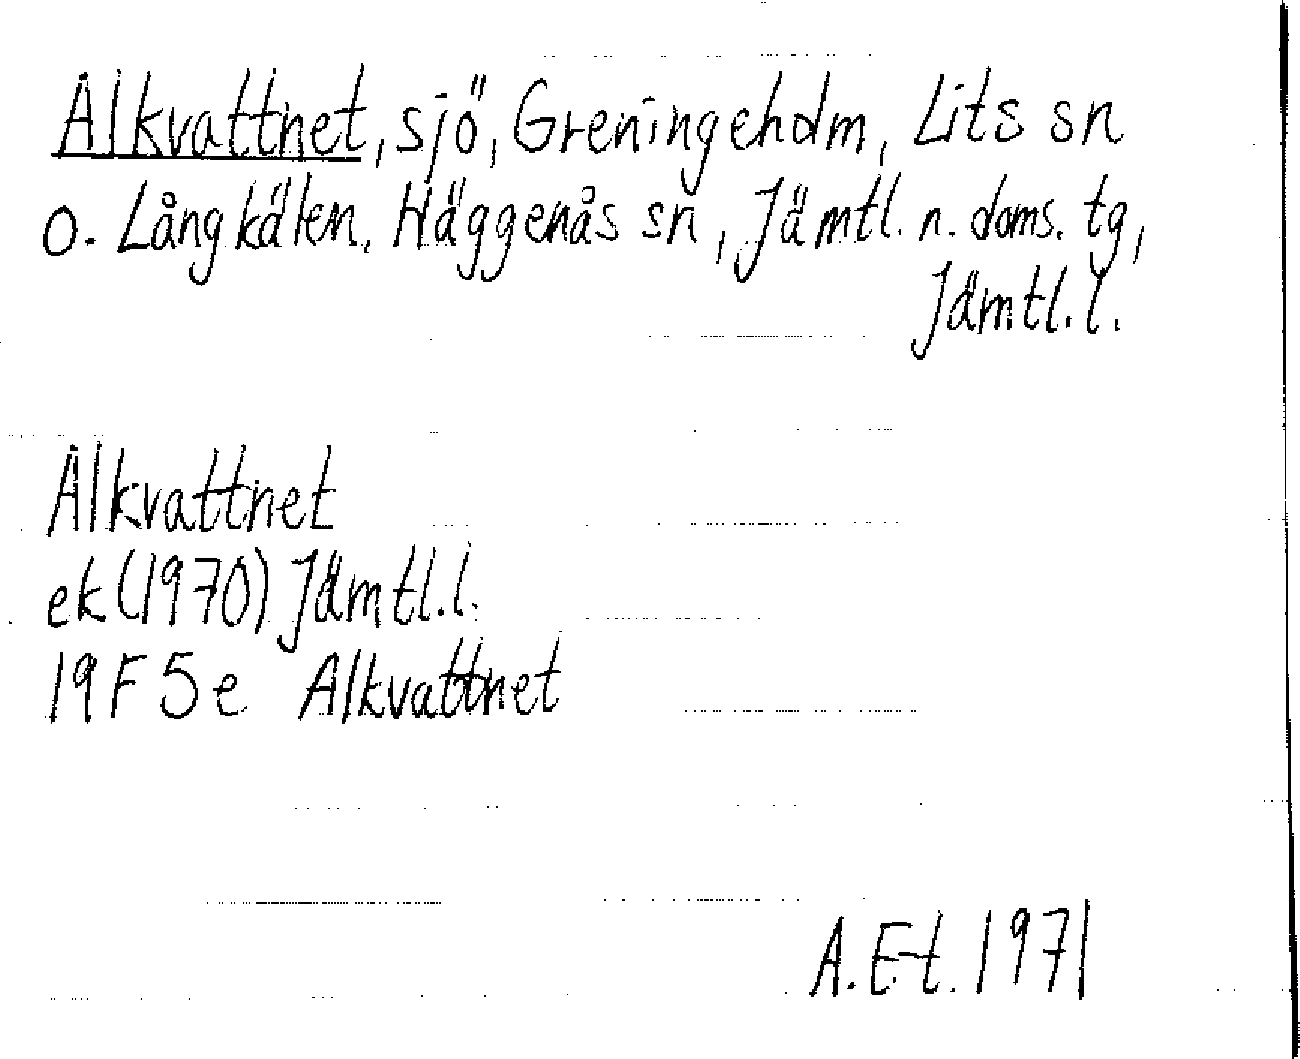 Alkvattnet, sjö, Greningeholm, Lits sn
o. Långkälen, Häggenås sn, Jämtl. n. doms. tg,
Jämtl.l.
Alkvattnet
ek (1970) Jämtl.l.
19F 5e Alkvattnet
A.E-t. 1971